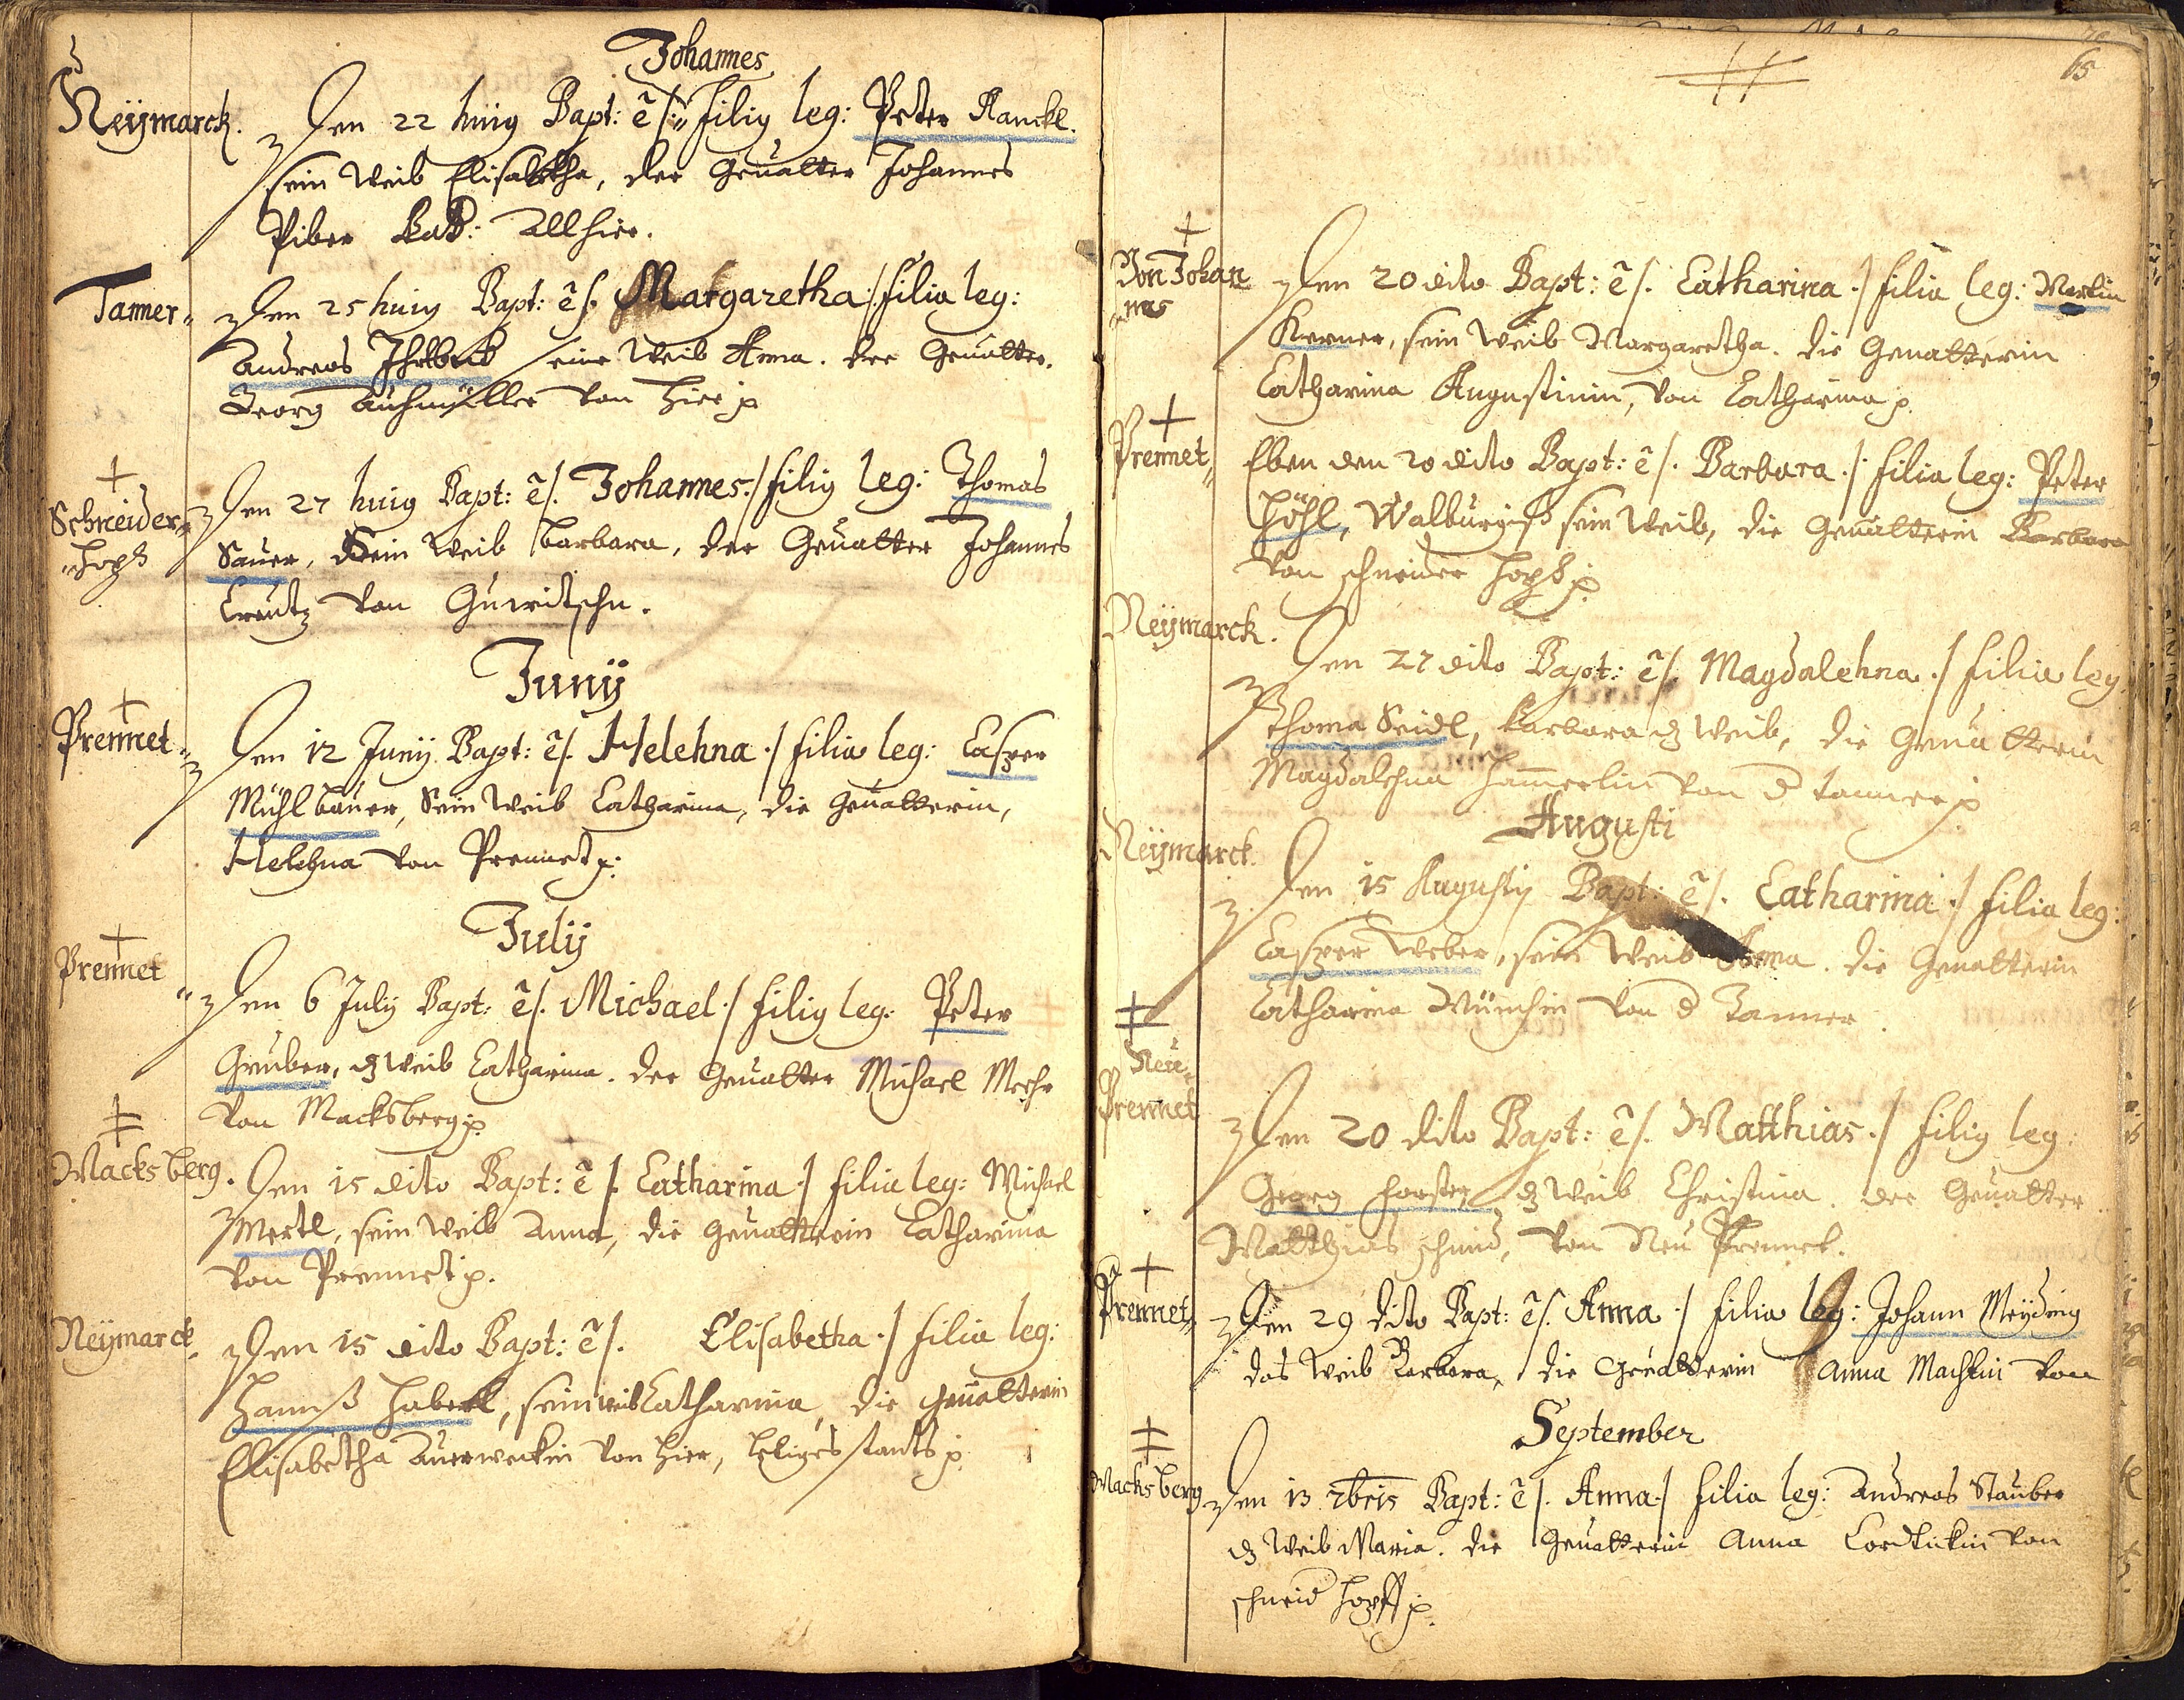 Johannes
Neÿmarck.
Den 22 huig Bapt: ẽ /:" filiq leg: Peter Ranckl.
sein Weib Elisabetha, der Gevatter Johannes
Piber allhier.
Tanner"
Den 25 huig Bapt: ẽ /. Margaretha ./. filia leg:
Andreas seine Weib Anna. der Gevatter.
Georg von hier p
Schneider"
"hopf
Den 27 huig Bapt: ẽ /. Johannes ./ filiq leg: Thomas
Sauer, Sein Weib barbara, der Gevatter Johannes
Creutz von
Junÿ
Prennet"
Den 12 Junÿ Bapt: ẽ /. Helehna ./ filia leg: Casper
Mühlbauer, Sein Weib Catharina, die Gevatterin,
Helehna von Prennet p:
Julÿ
Prennet"
Den 6 Julÿ Bapt: ẽ /. Michael ./ filiq leg: Peter
Gruber, Weib Catharina. der Gevatter Michael
von Macksberg p.
Macksberg.
Den 15 dito Bapt: ẽ /. Catharina ./ filia leg: Michael
Mertl, sein Weib Anna, die Gevatterin Catharina
von Prennet p.
Neÿmarck.
Den 15 dito Bapt: ẽ /. Elisabetha ./ filia leg:
Hannß Haberl, sein weib Catharina, die Gevatterin
Elisabetha Auerweckin von hier, lediges stants p.
65
Don Johan
nes
Den 20 dito Bapt: ẽ /. Catharina ./ filia leg: Martin
Kerner, sein Weib Margaretha. die Gevatterin
Catharina Augustinin, von Catharina p.
Prennet"
Eben den 20 dito Bapt: ẽ /. Barbara ./. filia leg: Peter
Höhl, Walburg sein Weib, die Gevatterin Barbara
von schneider hopf p:
Neÿmarck.
Den 27 dito Bapt: ẽ /. Magdalehna ./ filia leg.
Thoma Seidl, barbara Weib, die Gevatterin
Magdalehna Ham̄erlin von d tanner p
Augusti
Neÿmarck.
Den 15 Augustÿ Bapt: ẽ /. Catharina ./ filia leg:
Casper Weber, sein Weib Anna. die Gevatterin
Catharina Münchin von d Tanner.
Neue"
Prennet
Den 20 dito Bapt: ẽ /. Matthias ./ filiq leg:
Georg forster Weib Christina. der Gevatter
Matthias schmid, von Neu Prennet.
Prennet"
Den 29 dito Bapt: ẽ /. Anna ./ filia leg: Johann Meÿding
das Weib Barbara, die Gevatterin Anna Machtin von
September
Macksberg
Den 13 7bris Bapt: ẽ /. Anna ./ filia leg: Andreas Stauber
Weib Maria. die Gevatterin Anna von
schneid hopff p.